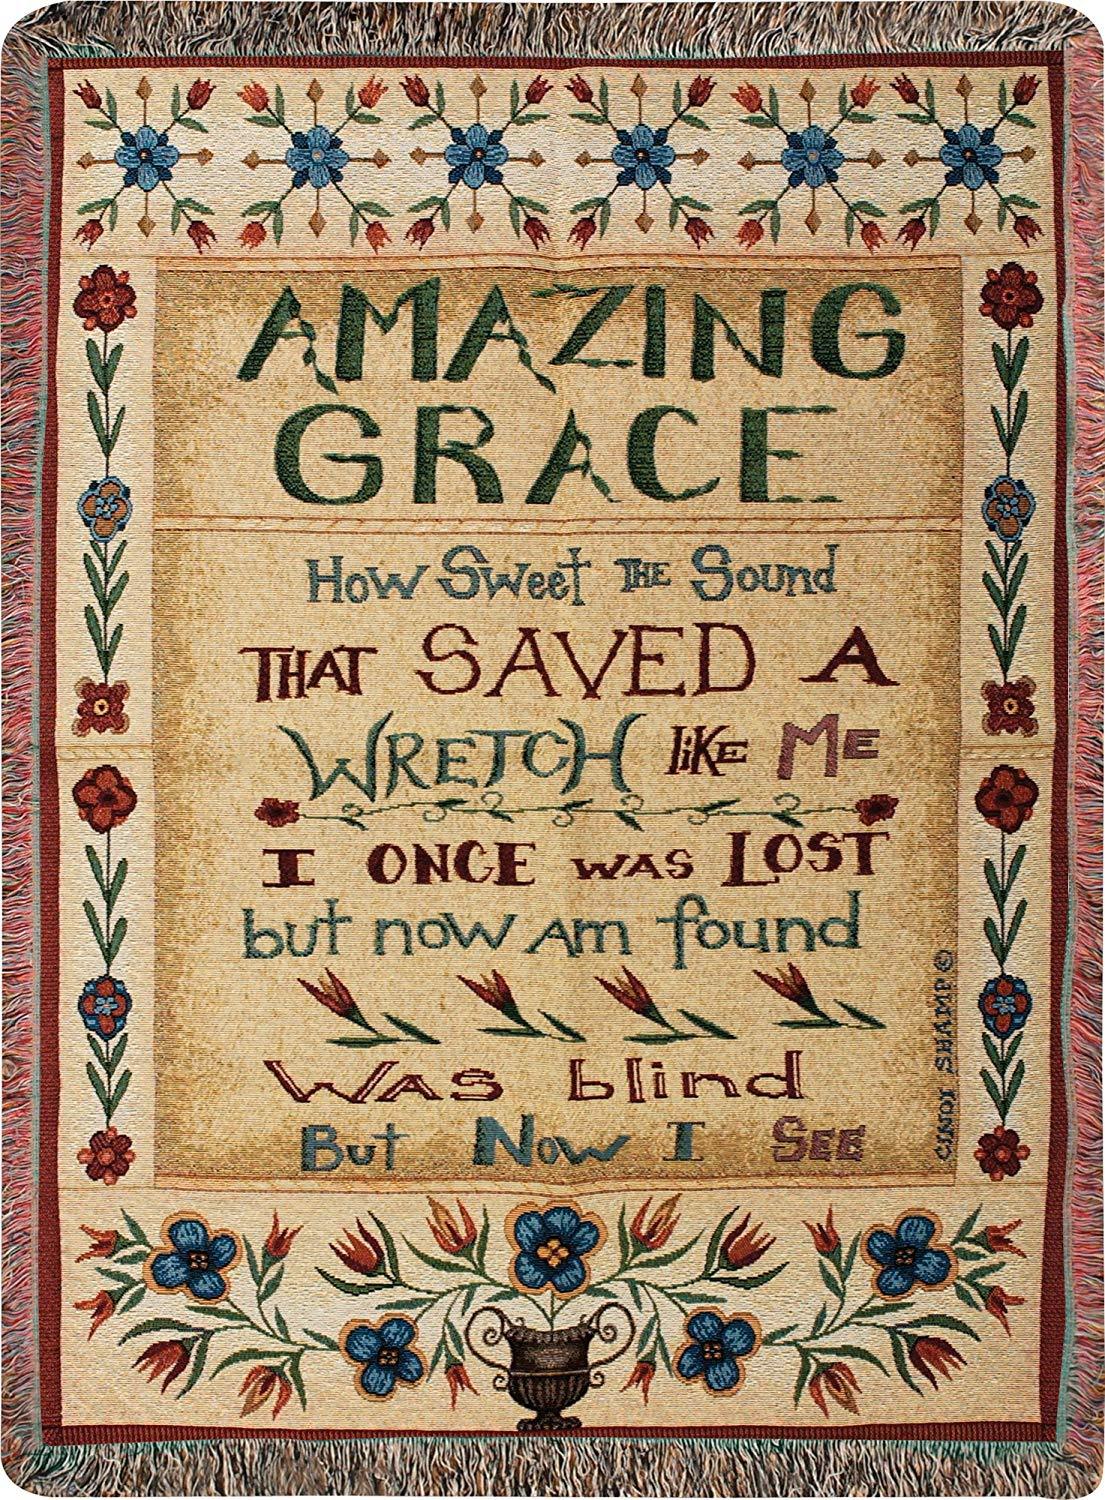 AMAZING
GRACE
How Sweet THE Sound
THAT SAVED A
WRETCH liKE ME
I ONCE WAS LOST
but now Am found
WAS blind
But Now I SEE
CINDI SHAMP ©